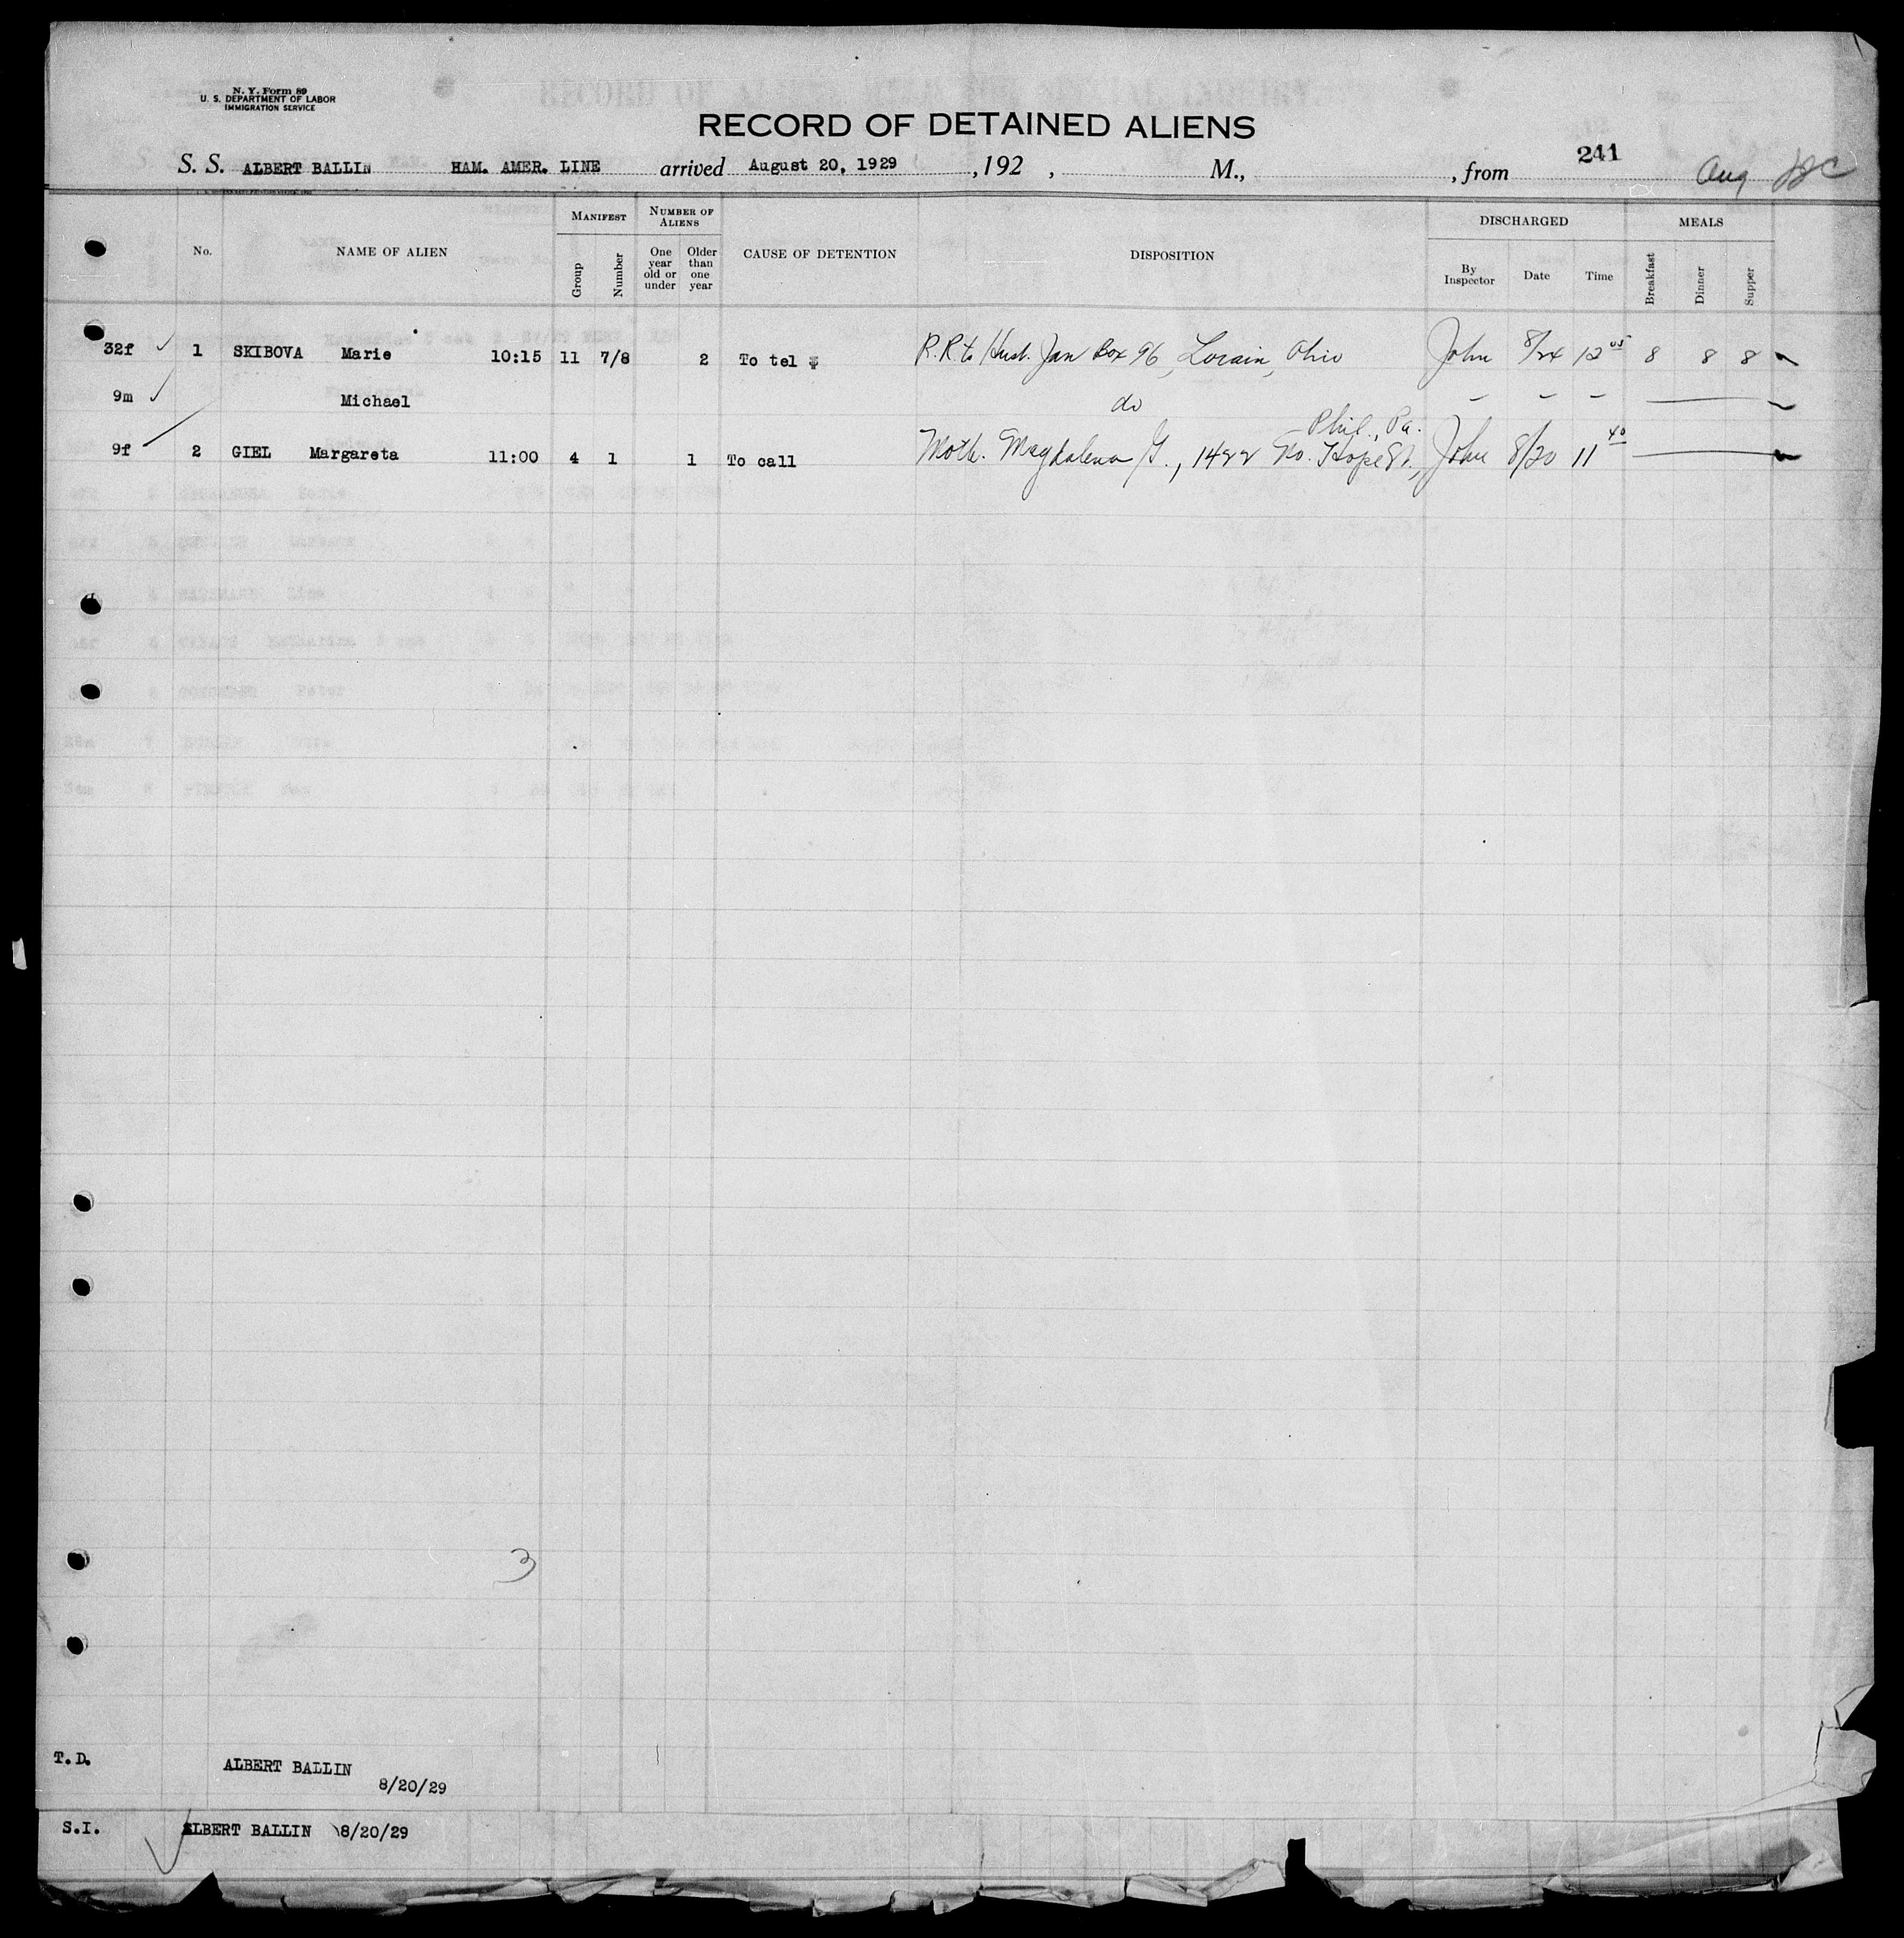 N. Y. Form 89
U. S. DEPARTMENT OF LABOR
IMMIGRATION SERVICE
RECORD OF DETAINED ALIENS
S. S. ALBERT BALLIN HAM. AMER. LINE arrived August 20, 1929 , 192 , M., , from 241 Aug
MANIFEST NUMBER OF ALIENS DISCHARGED MEALS
No. NAME OF ALIEN Group Number One year old or under Older than one year CAUSE OF DETENTION DISPOSITION By Inspector Date Time Breakfast Dinner Supper
32f 1 SKIBOVA Marie 10:15 11 7/8 2 To tel R.R. to Husb. Jan Box 96, Lorain, Ohio John 8/24 12 05 8 8 8
9m Michael do — — —
Phil., Pa.
9f 2 GIEL Margareta 11:00 4 1 1 To call Moth. Magdalena G., 1422 No. Hope St., John 8/20 11 40
3
T.D. ALBERT BALLIN
8/20/29
S.I. ALBERT BALLIN 8/20/29